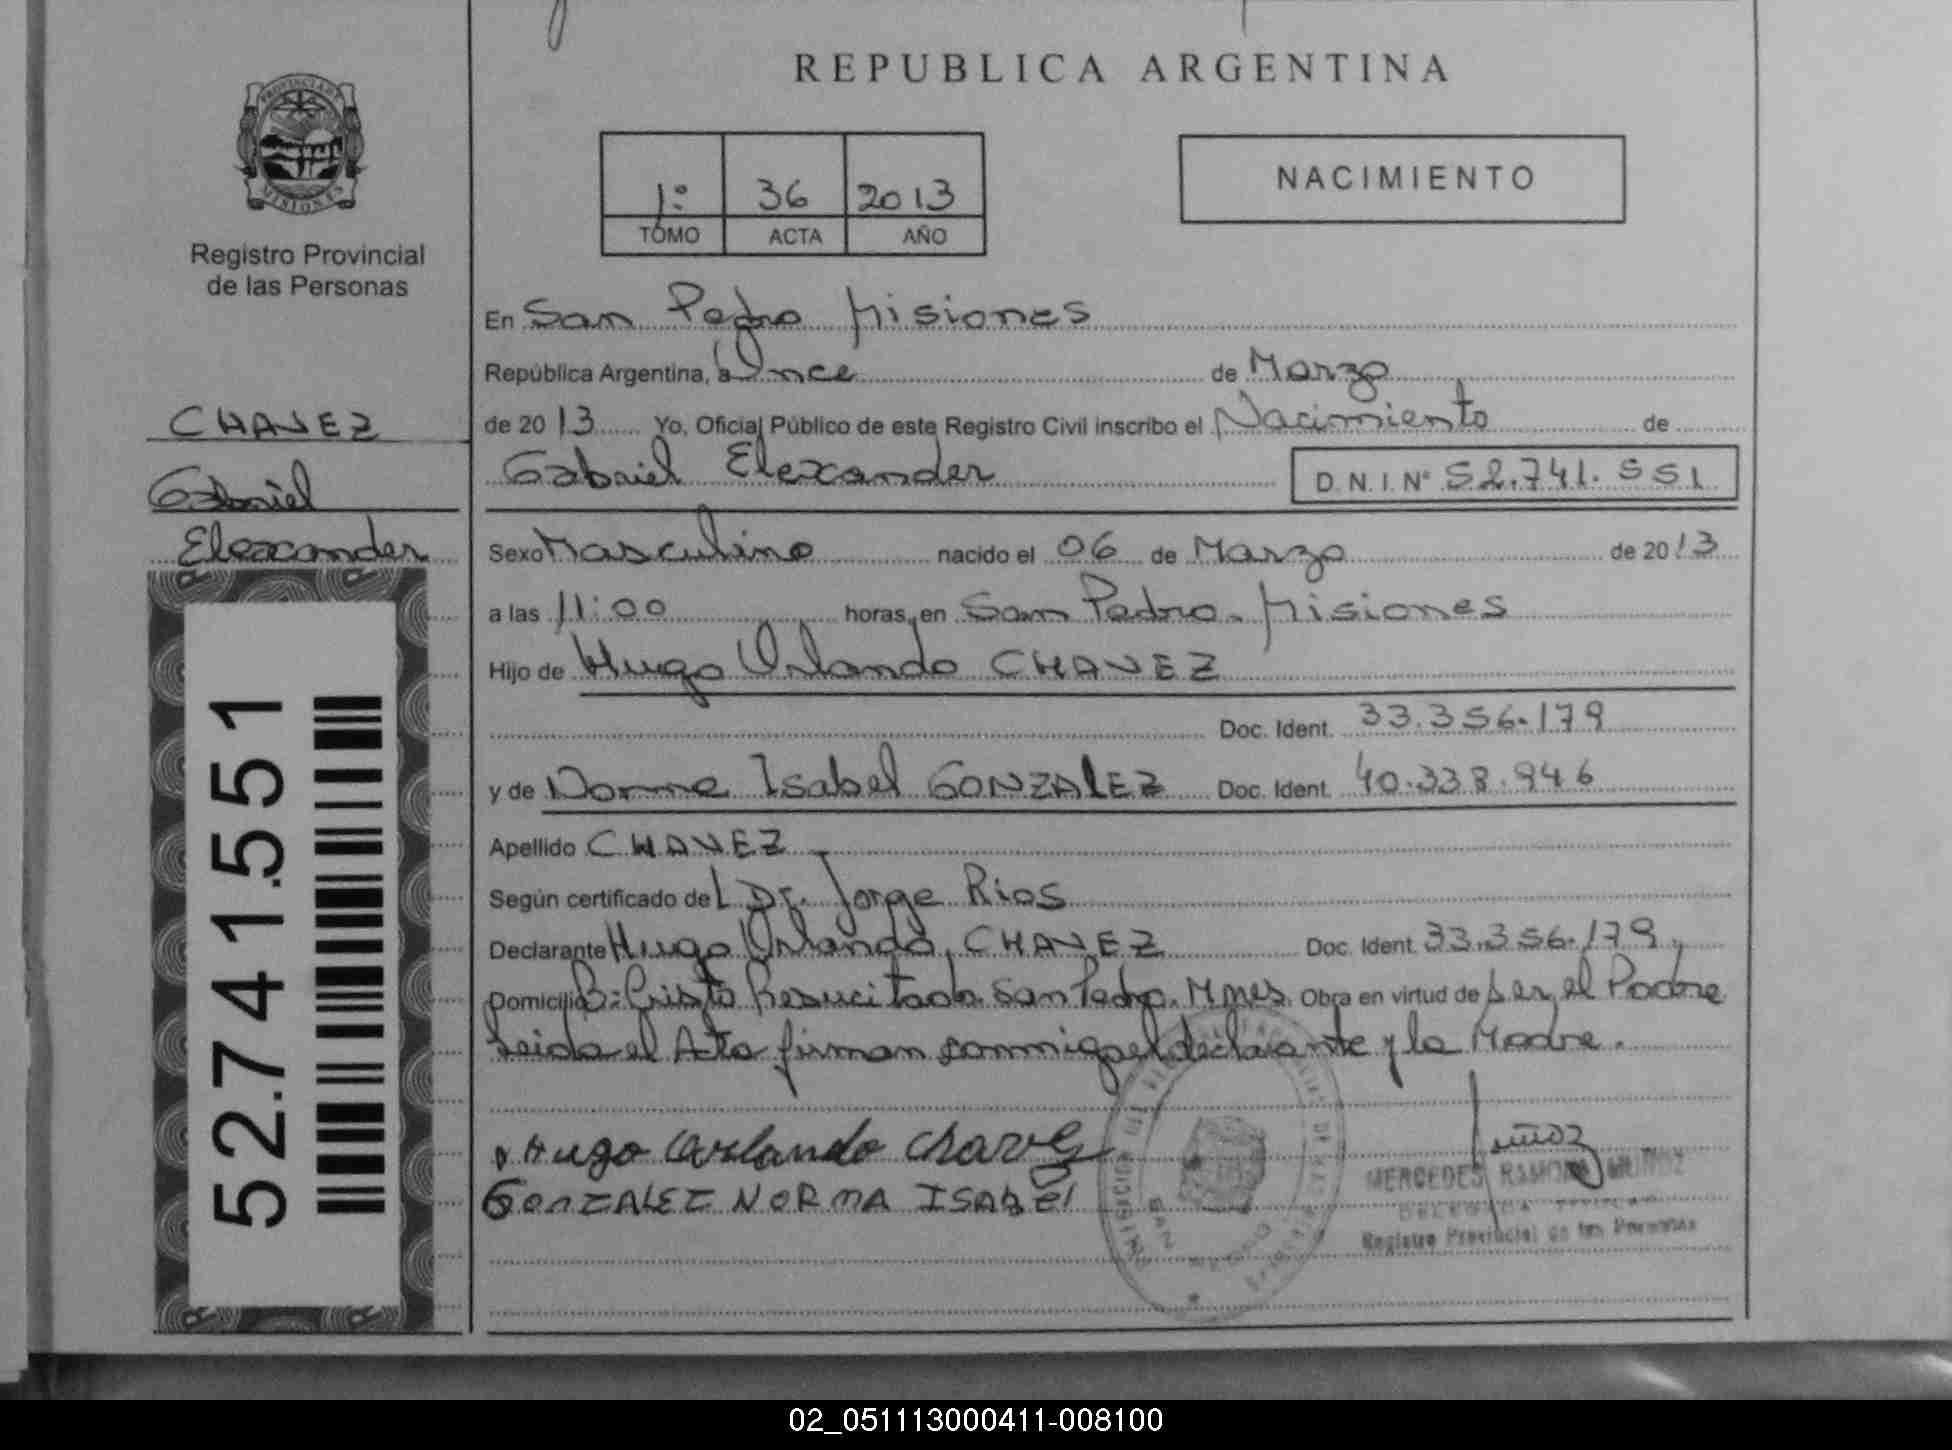 REPUBLICA ARGENTINA
PROVINCIA DE MISIONES
Registro Provincial
de las Personas
1º 36 2013
TOMO ACTA AÑO
NACIMIENTO
CHAVEZ
Gabriel
Elexander
52.741.551
En San Pedro Misiones
República Argentina, a Once de Marzo
de 2013 Yo, Oficial Público de este Registro Civil inscribo el Nacimiento de
Gabriel Elexander D.N.I. Nº 52.741.551
Sexo Masculino nacido el 06 de Marzo de 2013
a las 11:00 horas, en San Pedro. Misiones
Hijo de Hugo Orlando CHAVEZ
Doc. Ident. 33.356.179
y de Norma Isabel GONZALEZ Doc. Ident. 40.338.946
Apellido CHAVEZ
Según certificado del Dr. Jorge Rios
Declarante Hugo Orlando CHAVEZ Doc. Ident. 33.356.179
Domicilio B: Cristo Resucitado San Pedro. Mnes. Obra en virtud de ser el Padre
Leida el Acta firman conmigo el declarante y la Madre.
Hugo Orlando Chavez
GONZALEZ NORMA ISABEL
Muñoz
MERCEDES RAMONA MUÑOZ
DELEGADA TITULAR
Registro Provincial de las Personas
02_051113000411-008100